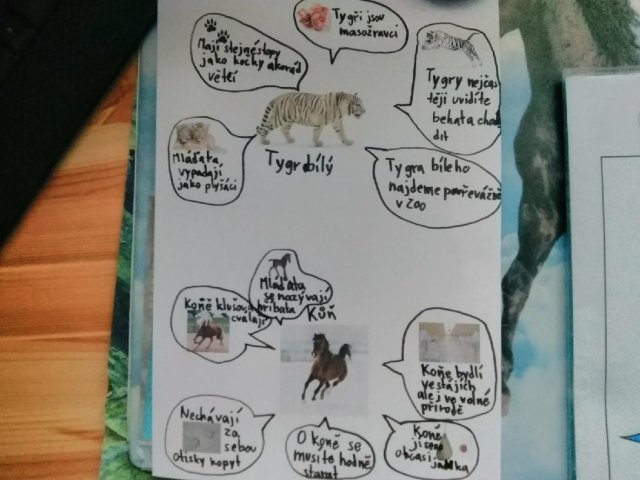 Tygři jsou
masožravci
Mají stejné stopy
jako kočky akorád
větší
Tygry nejčas
těji uvidíte
běhat a chodit
dit
Mláďata
vypadají
jako plyšáci
Tygr bílý
Tygra bíleho
najdeme převážně
v zoo
Mláďata
se nazývají
hříbata
Koně klušou a
cválají
Kůň
Koňe bydlí
ve stájích
ale j ve volné
přírodě
Nechávají
za
sebou
otisky kopyt
O koně se
musíte hodně
starat
Koně
jí seno
občas i jablka